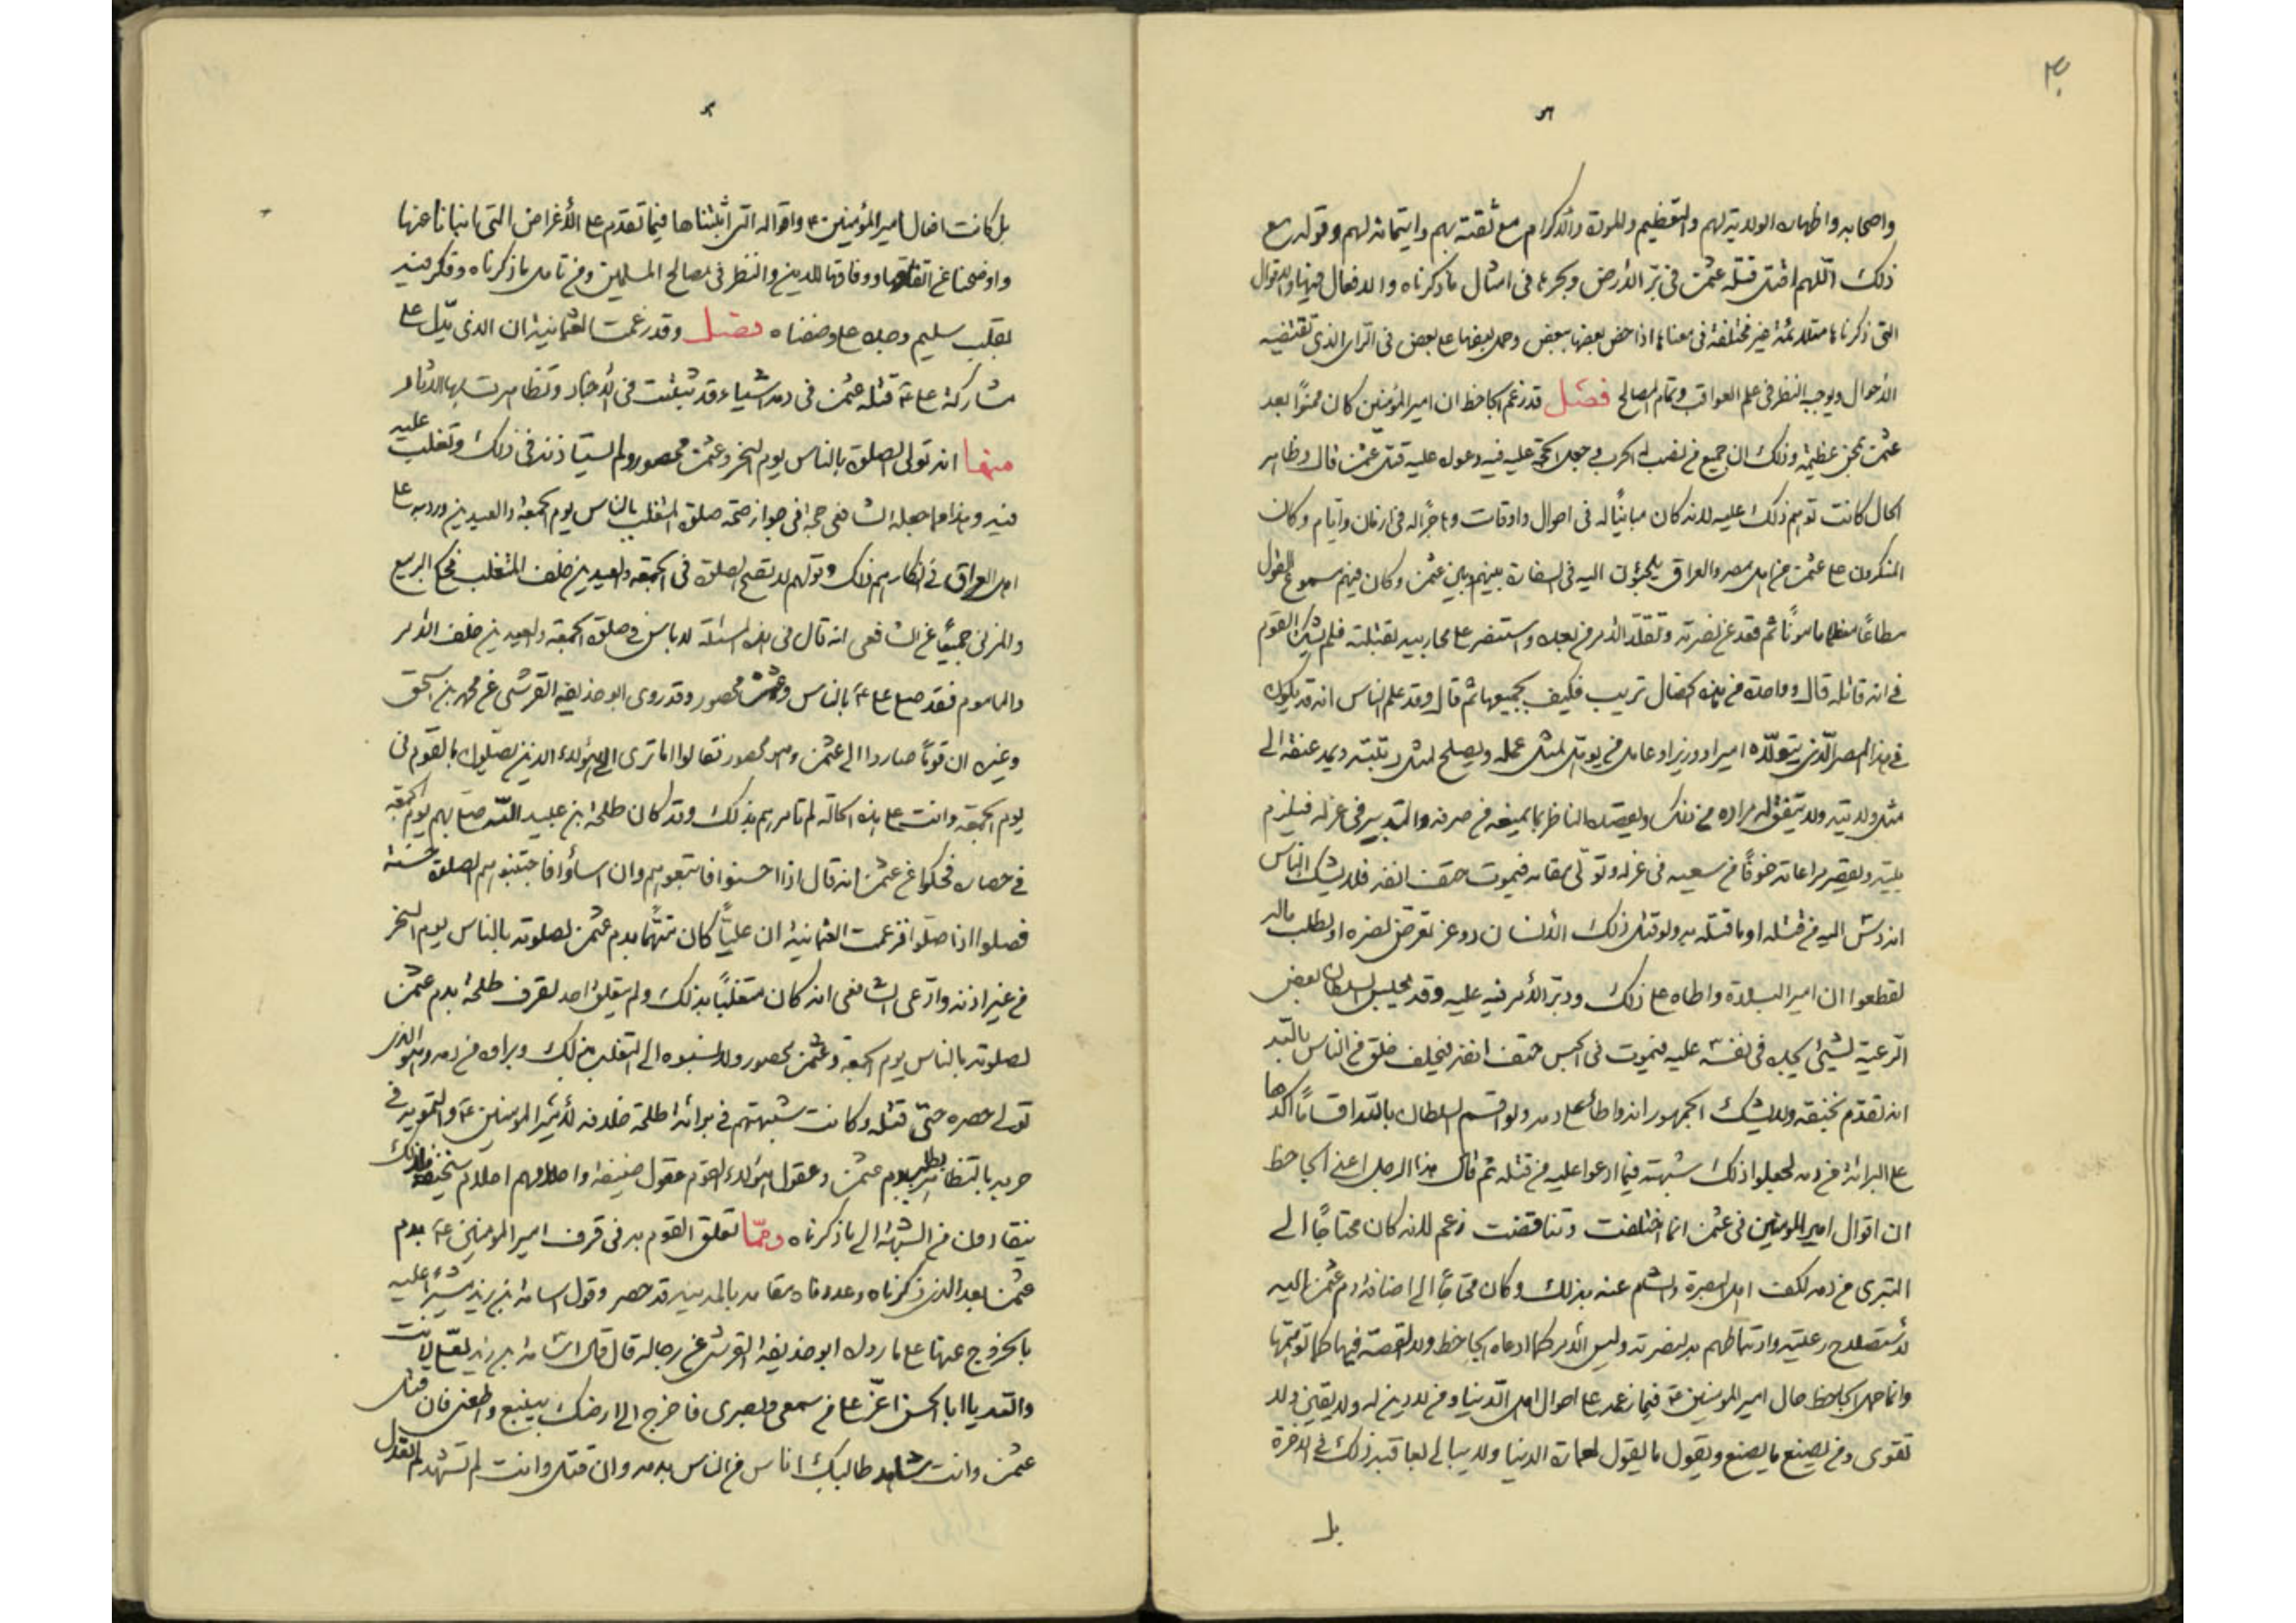 واصحابه واظهاره الولاية لهم والتعظيم والمودة والاكرام مع ثقته بهم وايتمانه لهم وقوله مع
ذلك اللّهم اقتل قتلة عثمن في برّ الأرض وبحرها في امثال ما ذكرناه والافعال فيها والاقوال
التى ذكرناها متلائمة غير مختلفة في معناها اذا خصّ بعضها ببعض وحمل بعضها على بعض في الرأى الذى تقتضيه
الأحوال ويوجب النظر في علم العواقب وتمام المصالح فصل قد زعم الجاحظ ان امير المؤمنين كان ممنوًّا بعد
عثمن بمحن عظيمة وذلك ان جميع من نصب له الحرب جعل الحجة عليه فيه دعواه عليه قتل عثمن قال وظاهر
الحال كانت توهم ذلك عليه لانه كان مباينًا له في احوال واوقات وهاجرًا له في ازمان وايام وكان
المنكرون على عثمن من اهل مصر والعراق يلجئون اليه في السفارة بينهم وبين عثمن وكان فيهم مسموع القول
مطاعًا معظما مامونًا ثم قعد عن نصرته وتقلد الأمر من بعده واستنصر على محاربيه بقتلته فلم يشك القوم
في انه قاتله قال وواحدة من هذه الخصال تريب فكيف بجميعها ثم قال وقد علم الناس انه قد يكون
في هذا المصر الّذى يتولّاه امير او وزير او عامل من يؤهل لمثل عمله ويصلح لمثل رتبته ويمد عنقه الى
مثل ولايته ولا يتفق له مراده من ذلك ويقصده الناظر بما يمنعه من صرفه والتدبير في عزله فيلزم
بيته ويقصر مراعاته خوفًا من سعيه في عزله وتولّى مقامه فيموت حتف انفه فلا يشك الناس
انه دسّ اليه من قتله او ما قتله به ولو قتل ذلك الأنسان ذو عز تعرّض لضره او يطلب ماله
لقطعوا ان امير البلدة واطاه على ذلك ودبر الأمر فيه عليه وقد يحبس السلطان بعض
الرعية لشئ يجده في نفسه عليه فيموت في الحبس حتف انفه فيحلف خلق من الناس بالله
انه تقدم بخنقه ولا يشك الجمهور انه واطأ على دمه ولو اقسم السلطان بالله اقسامًا اكدها
على البرائة من دمه لجعلوا ذلك شبهة فيما ادعوا عليه من قتله ثم قال هذا الرجل اعنى الجاحظ
ان اقوال امير المومنين في عثمن انما اختلفت وتناقضت زعم لانه كان محتاجًا الى
التبرى من دمه لكف اهل البصرة والشام عنه بذلك وكان محتاجًا الى اضافة دم عثمن اليه
لاستصلاح رعيته وارتباطهم لنصرته وليس الأمر كما ادعاه الجاحظ ولا القصة فيها كما توهمها
وانما حمل الجاحظ حال امير المؤمنين فيما زعمه على احوال اهل الدنيا ومن لا دين له ولا يقين ولا
تقوى ومن يصنع ما يصنع ويقول ما يقول لعمارة الدنيا ولا يبالى بعاقبة ذلك في الاخرة
بل
بل كانت افعال امير المؤمنين ع واقواله التى اثبتناها فيما تقدم على الأغراض التى انبانا عنها
واوضحنا عن اتفاقها ووفاقها للدين والنظر في مصالح المسلمين ومن تامل ما ذكرناه وفكر فيه
بقلب سليم وجده على وصفناه فصل وقد زعمت العثمانية ان الذى يدّل على
مشاركة على ع قتلة عثمن في دمه اشياء قد ثبتت في الاخبار وتظاهرت بها الاثار
منها انه تولى الصلوة بالناس يوم النحر وعثمن محصور ولم يستاذنه في ذلك وتغلب عليه
فيه وهذا مما جعله الشافعى حجة في جواز صحة صلوة المتغلب بالناس يوم الجمعة والعيدين ورد به على
اهل العراق في انكارهم ذلك وقولهم لا تصح الصلوة في الجمعة والعيدين خلف المتغلب فحكى الربيع
والمزنى جميعًا عن الشافعى انه قال في هذه المسئلة لا باس في صلوة الجمعة والعيدين خلف الأمر
والماموم فقد صلى على ع بالناس وعثمن محصور وقد روى ابو حذيفه القرشى عن محمد بن اسحق
وغيره ان قومًا صاروا الى عثمن وهو محصور فقالوا اما ترى الى هؤلاء الذين يصلون بالقوم في
يوم الجمعة وانت على هذه الحالة لم تامرهم بذلك وقد كان طلحة بن عبيد اللّه صلى بهم يوم الجمعة
في حصاره فحكوا عن عثمن انه قال اذا احسنوا فاتبعوهم وان اساؤا فاجتنبوهم الصلوة حسنة
فصلوا اذا صلّوا فزعمت العثمانية ان عليًا كان متّهمًا بدم عثمن لصلوته بالناس يوم النحر
من غير اذنه وادّعى الشافعى انه كان متغلبًا بذلك ولم يتعلق احد بقرف طلحة بدم عثمن
لصلوته بالناس يوم الجمعة وعثمن محصور ولا نسبوه الى التغلب بذلك وبراوه من دمه وهو الذى
تولى حصره حتّى قتله وكانت شبهتهم في برائة طلحة خلافه لأمير المومنين ع والتمويه في
حربه بالتظاهر بطلب دم عثمن وعقول هؤلاء القوم عقول ضعيفة واحلامهم احلام سخيفة فلذلك
ينقادون من الشبهة الى ما ذكرناه وممّا تعلق القوم به في قرف امير المومنين ع بدم
عثمن بعد الذى ذكرناه وعددناه مقامه بالمدينه قد حصر وقول اسامة بن زيد مشيرًا عليه
بالخروج عنها على ما رواه ابو حذيفة القرشى عن رجاله قال قال اسامة بن زيد لعلى لانت
والله يا ابا الحسن اعزّ على من سمعى وبصرى فاخرج الى ارضك بينبع واطعنى فان قتل
عثمن وانت شاهد طالبك اناس من الناس بدمه وان قتل وانت لم تشهد لم القول